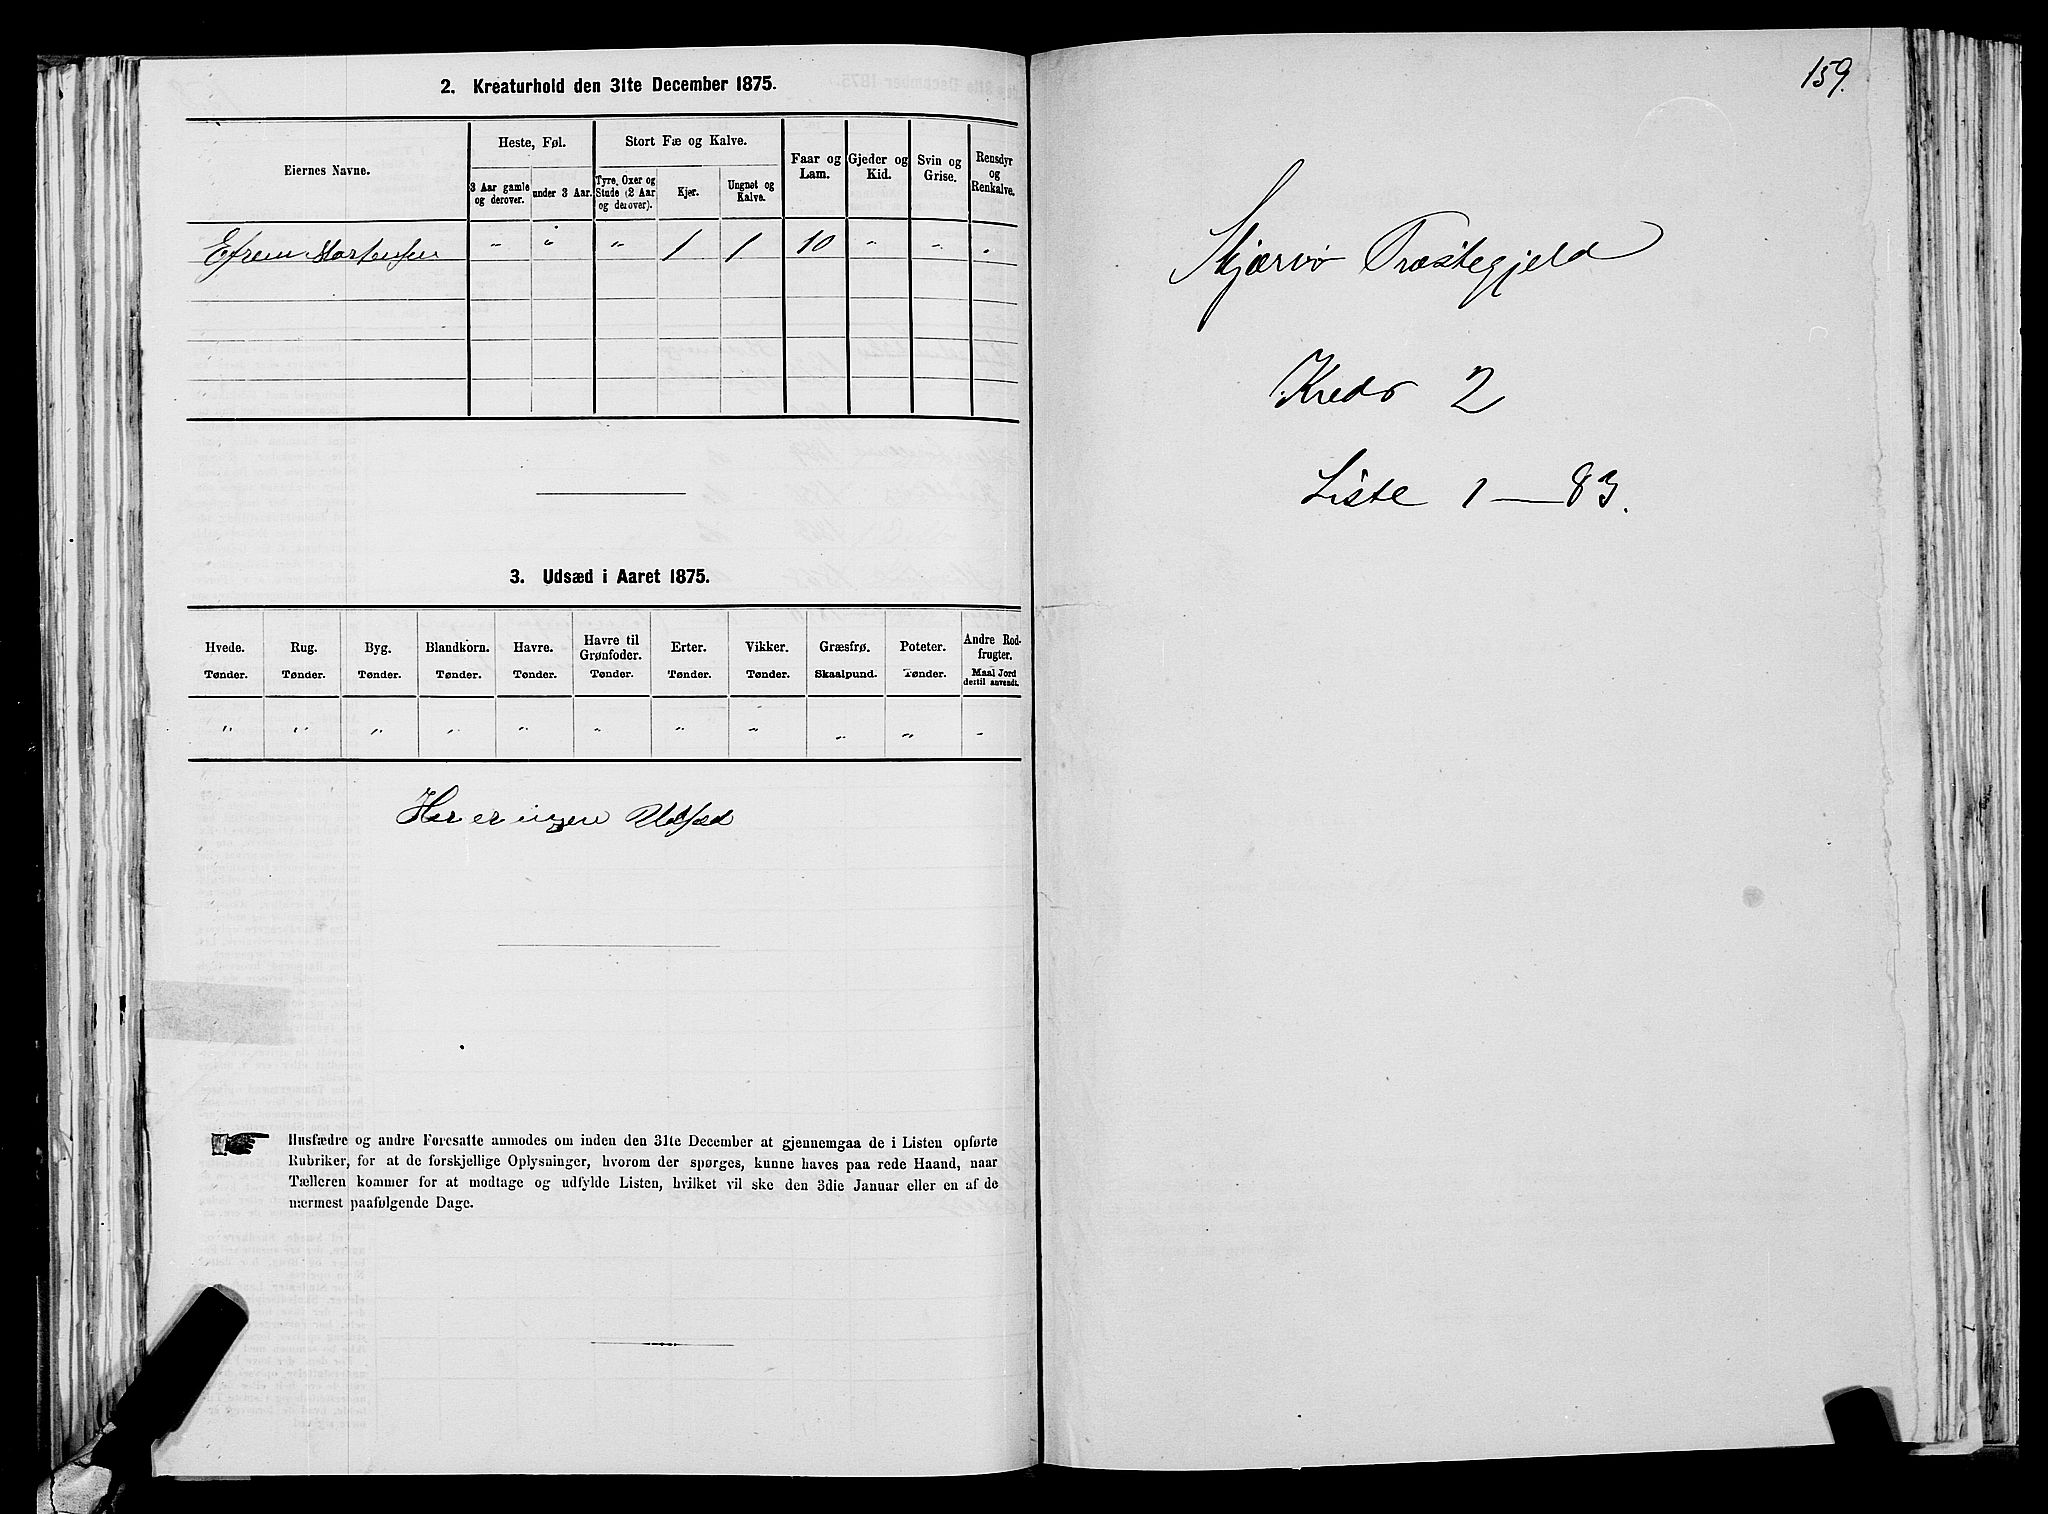 2. Kreaturhold den 31te December 1875.
Eiernes Navne.
Heste, Føl.
Stort Fæ og Kalve.
Faar og Lam.
Gjeder og Kid.
Svin og Grise.
Rensdyr og Renkalve.
3 Aar gamle og derover.
under 3 Aar.
Tyre, Oxer og Stude (2 Aar og derover).
Kjør.
Ungnøt og Kalve.
Efrem Mortensen " " " 1 1 10 " " "
3. Udsæd i Aaret 1875.
Hvede. Rug. Byg. Blandkorn. Havre. Havre til Grønfoder. Erter. Vikker. Græsfrø. Poteter. Andre Rodfrugter.
Tønder. Tønder. Tønder. Tønder. Tønder. Tønder. Tønder. Tønder. Skaalpund. Tønder. Maal Jord dertil anvendt.
" " " " " " " " " " "
Her er ingen Udsæd
Husfædre og andre Foresatte anmodes om inden den 31te December at gjennemgaa de i Listen opførte
Rubriker, for at de forskjellige Oplysninger, hvorom der spørges, kunne haves paa rede Haand, naar
Tælleren kommer for at modtage og udfylde Listen, hvilket vil ske den 3die Januar eller en af de
nærmest paafølgende Dage.
159.
Skjærvø Præstegjeld
Kreds 2
Liste 1 — 83.